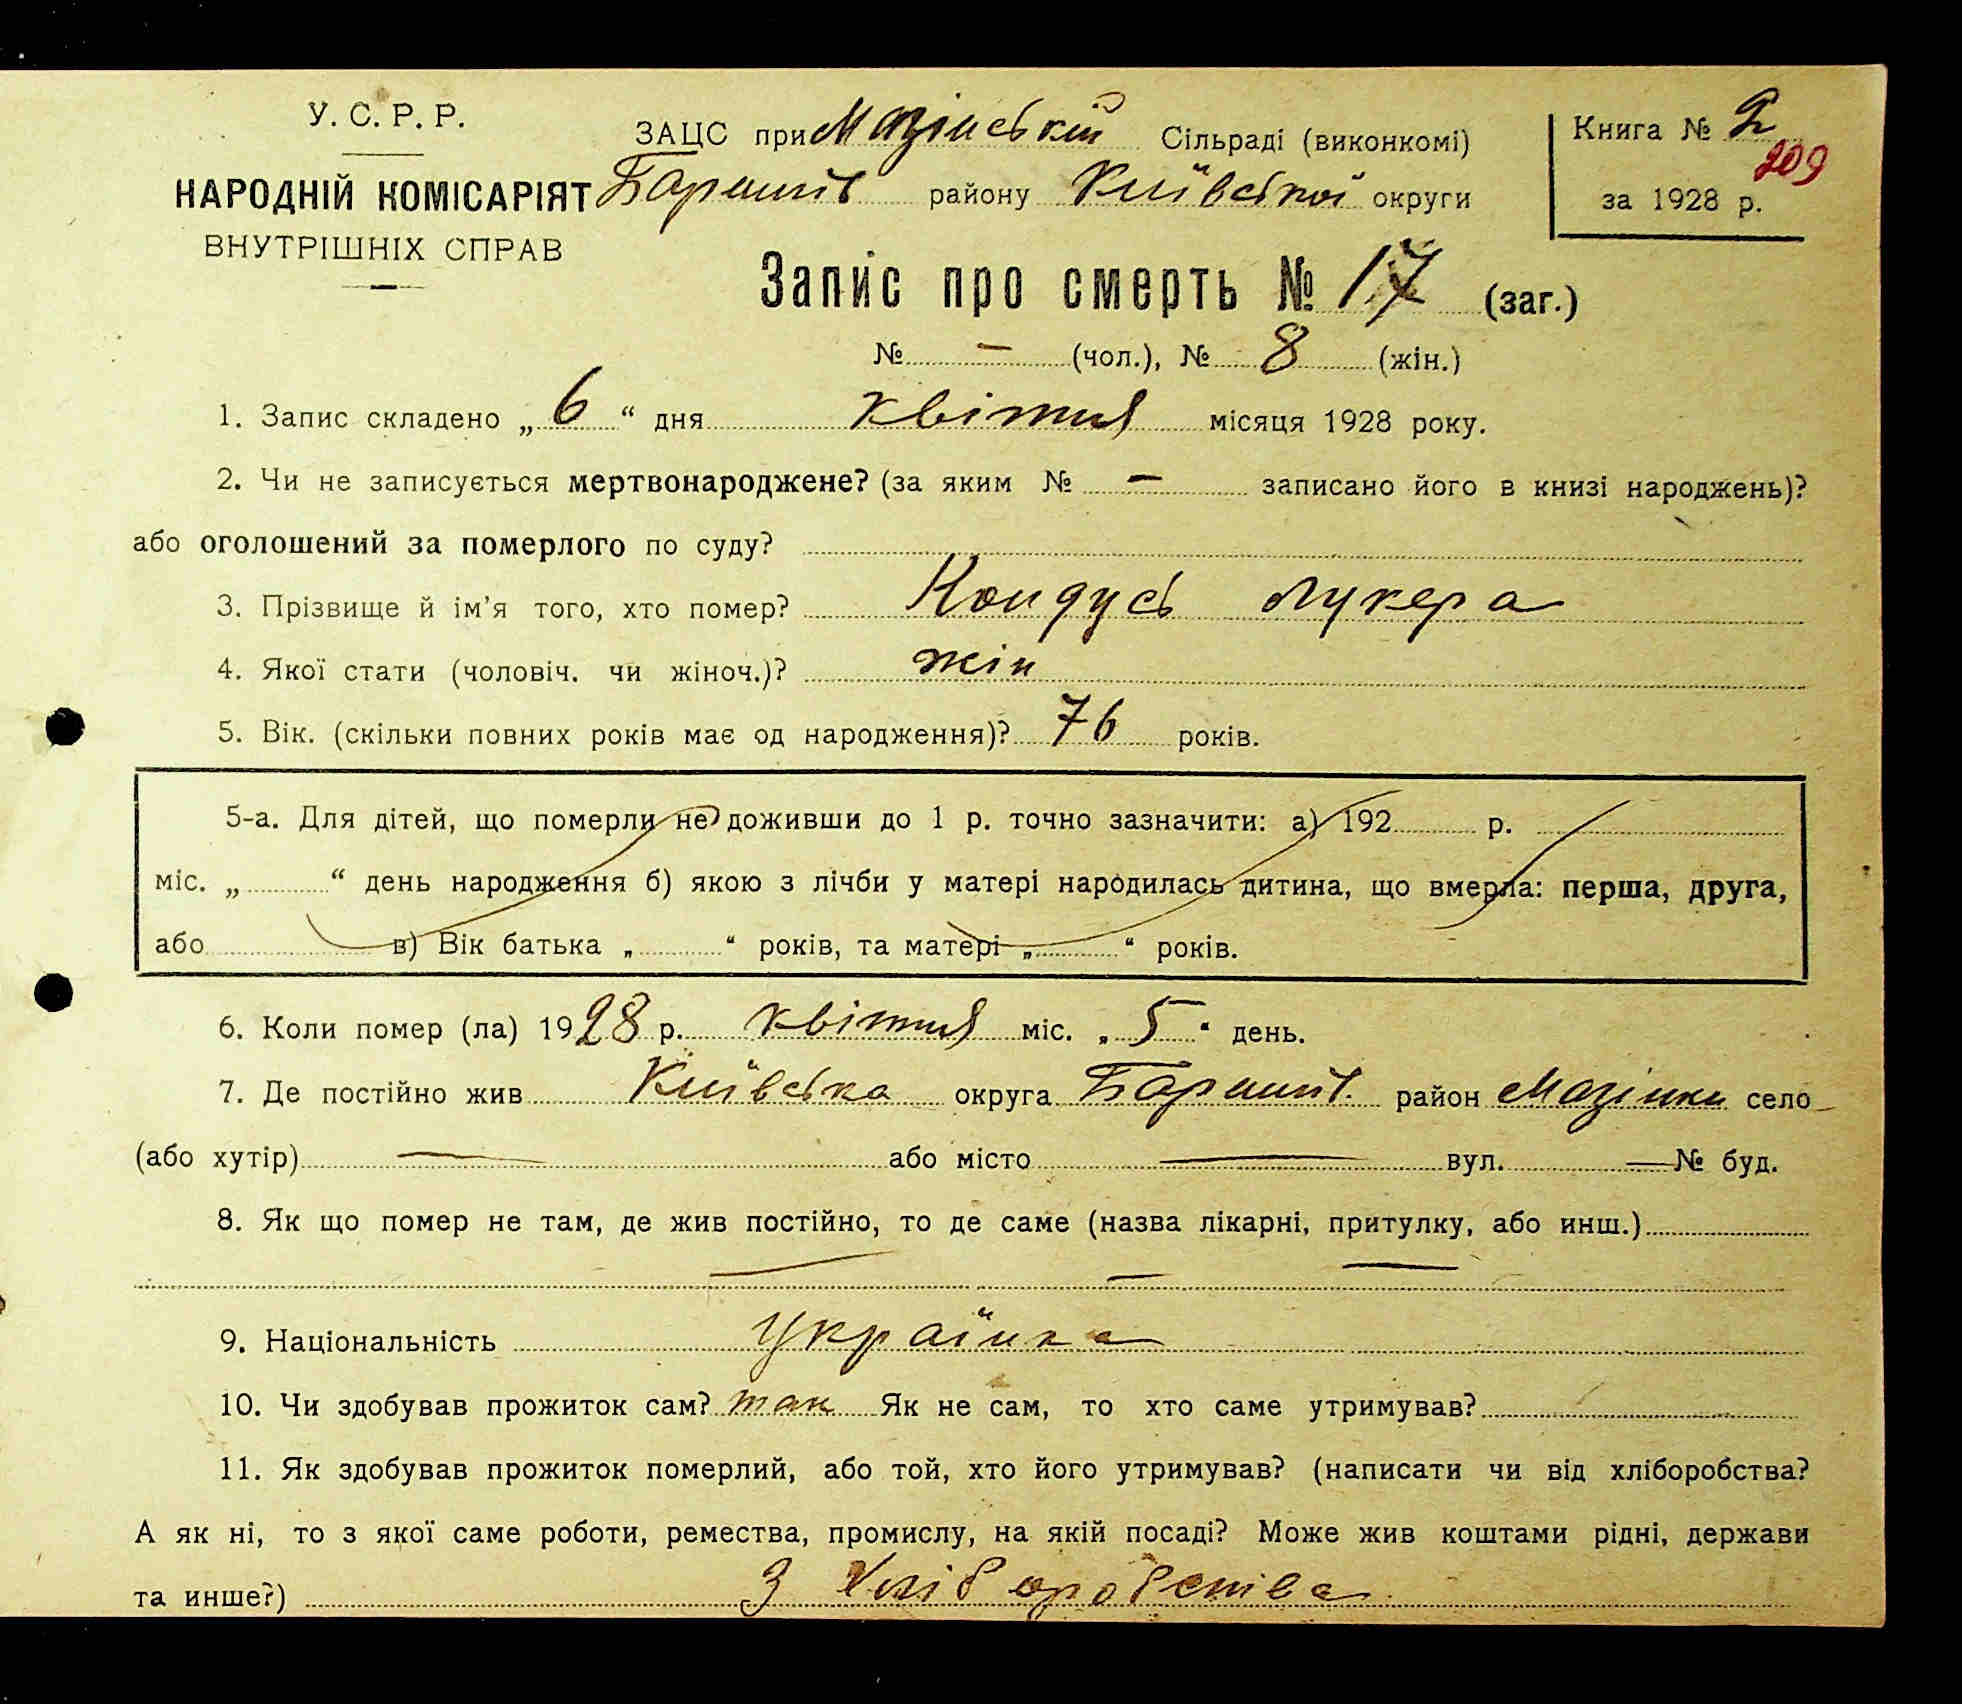 У. С. Р. Р.
НАРОДНІЙ КОМІСАРІЯТ
ВНУТРІШНІХ СПРАВ
ЗАЦС при Мазінській Сільраді (виконкомі)
Баришів району Київської округи
Книга № 2
209
за 1928 р.
Запис про смерть № 17 (заг.)
№ — (чол.), № 8 (жін.)
1. Запис складено „ 6 “ дня квітня місяця 1928 року.
2. Чи не записується мертвонароджене? (за яким № — записано його в книзі народжень)?
або оголошений за померлого по суду?
3. Прізвище й ім’я того, хто помер? Кондусь Лукера
4. Якої стати (чоловіч. чи жіноч.)? жін
5. Вік. (скільки повних років має од народження)? 76 років.
5-а. Для дітей, що померли не доживши до 1 р. точно зазначити: а) 192 р.
міс. „ “ день народження б) якою з лічби у матері народилась дитина, що вмерла: перша, друга,
або в) Вік батька „ “ років, та матері „ “ років.
6. Коли помер (ла) 1928 р. квітня міс. „ 5 “ день.
7. Де постійно жив Київська округа Баришів. район Мазінки село
(або хутір) — або місто — вул. — № буд.
8. Як що помер не там, де жив постійно, то де саме (назва лікарні, притулку, або инш.)
— — —
9. Національність Українка
10. Чи здобував прожиток сам? так Як не сам, то хто саме утримував?
11. Як здобував прожиток померлий, або той, хто його утримував? (написати чи від хліборобства?
А як ні, то з якої саме роботи, ремества, промислу, на якій посаді? Може жив коштами рідні, держави
та инше?) З Хліборобства